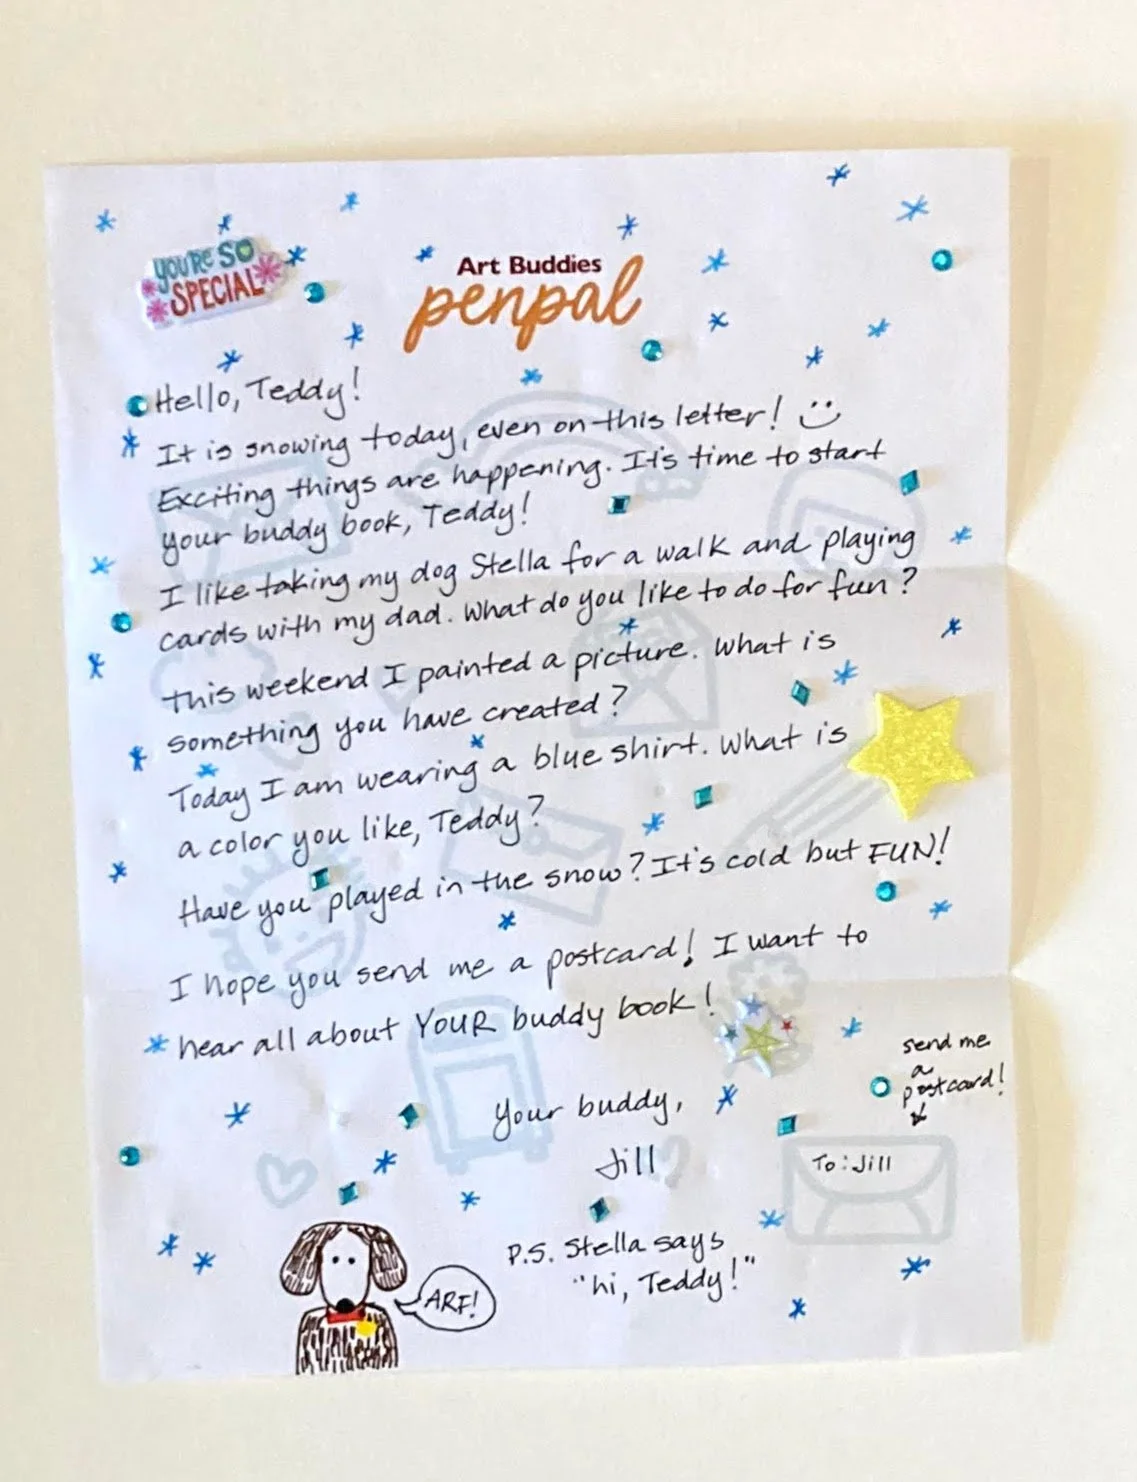 YOU'RE SO
SPECIAL
Art Buddies
penpal
Hello, Teddy!
It is snowing today, even on this letter!
Exciting things are happening. It's time to start
your buddy book, Teddy!
I like taking my dog Stella for a walk and playing
cards with my dad. What do you like to do for fun?
This weekend I painted a picture. What is
something you have created?
Today I am wearing a blue shirt. What is
a color you like, Teddy?
Have you played in the snow? It's cold but FUN!
I hope you send me a postcard! I want to
hear all about YOUR buddy book!
Your buddy,
Jill
send me
a
postcard!
To: Jill
P.S. Stella says
"hi, Teddy!"
ARF!